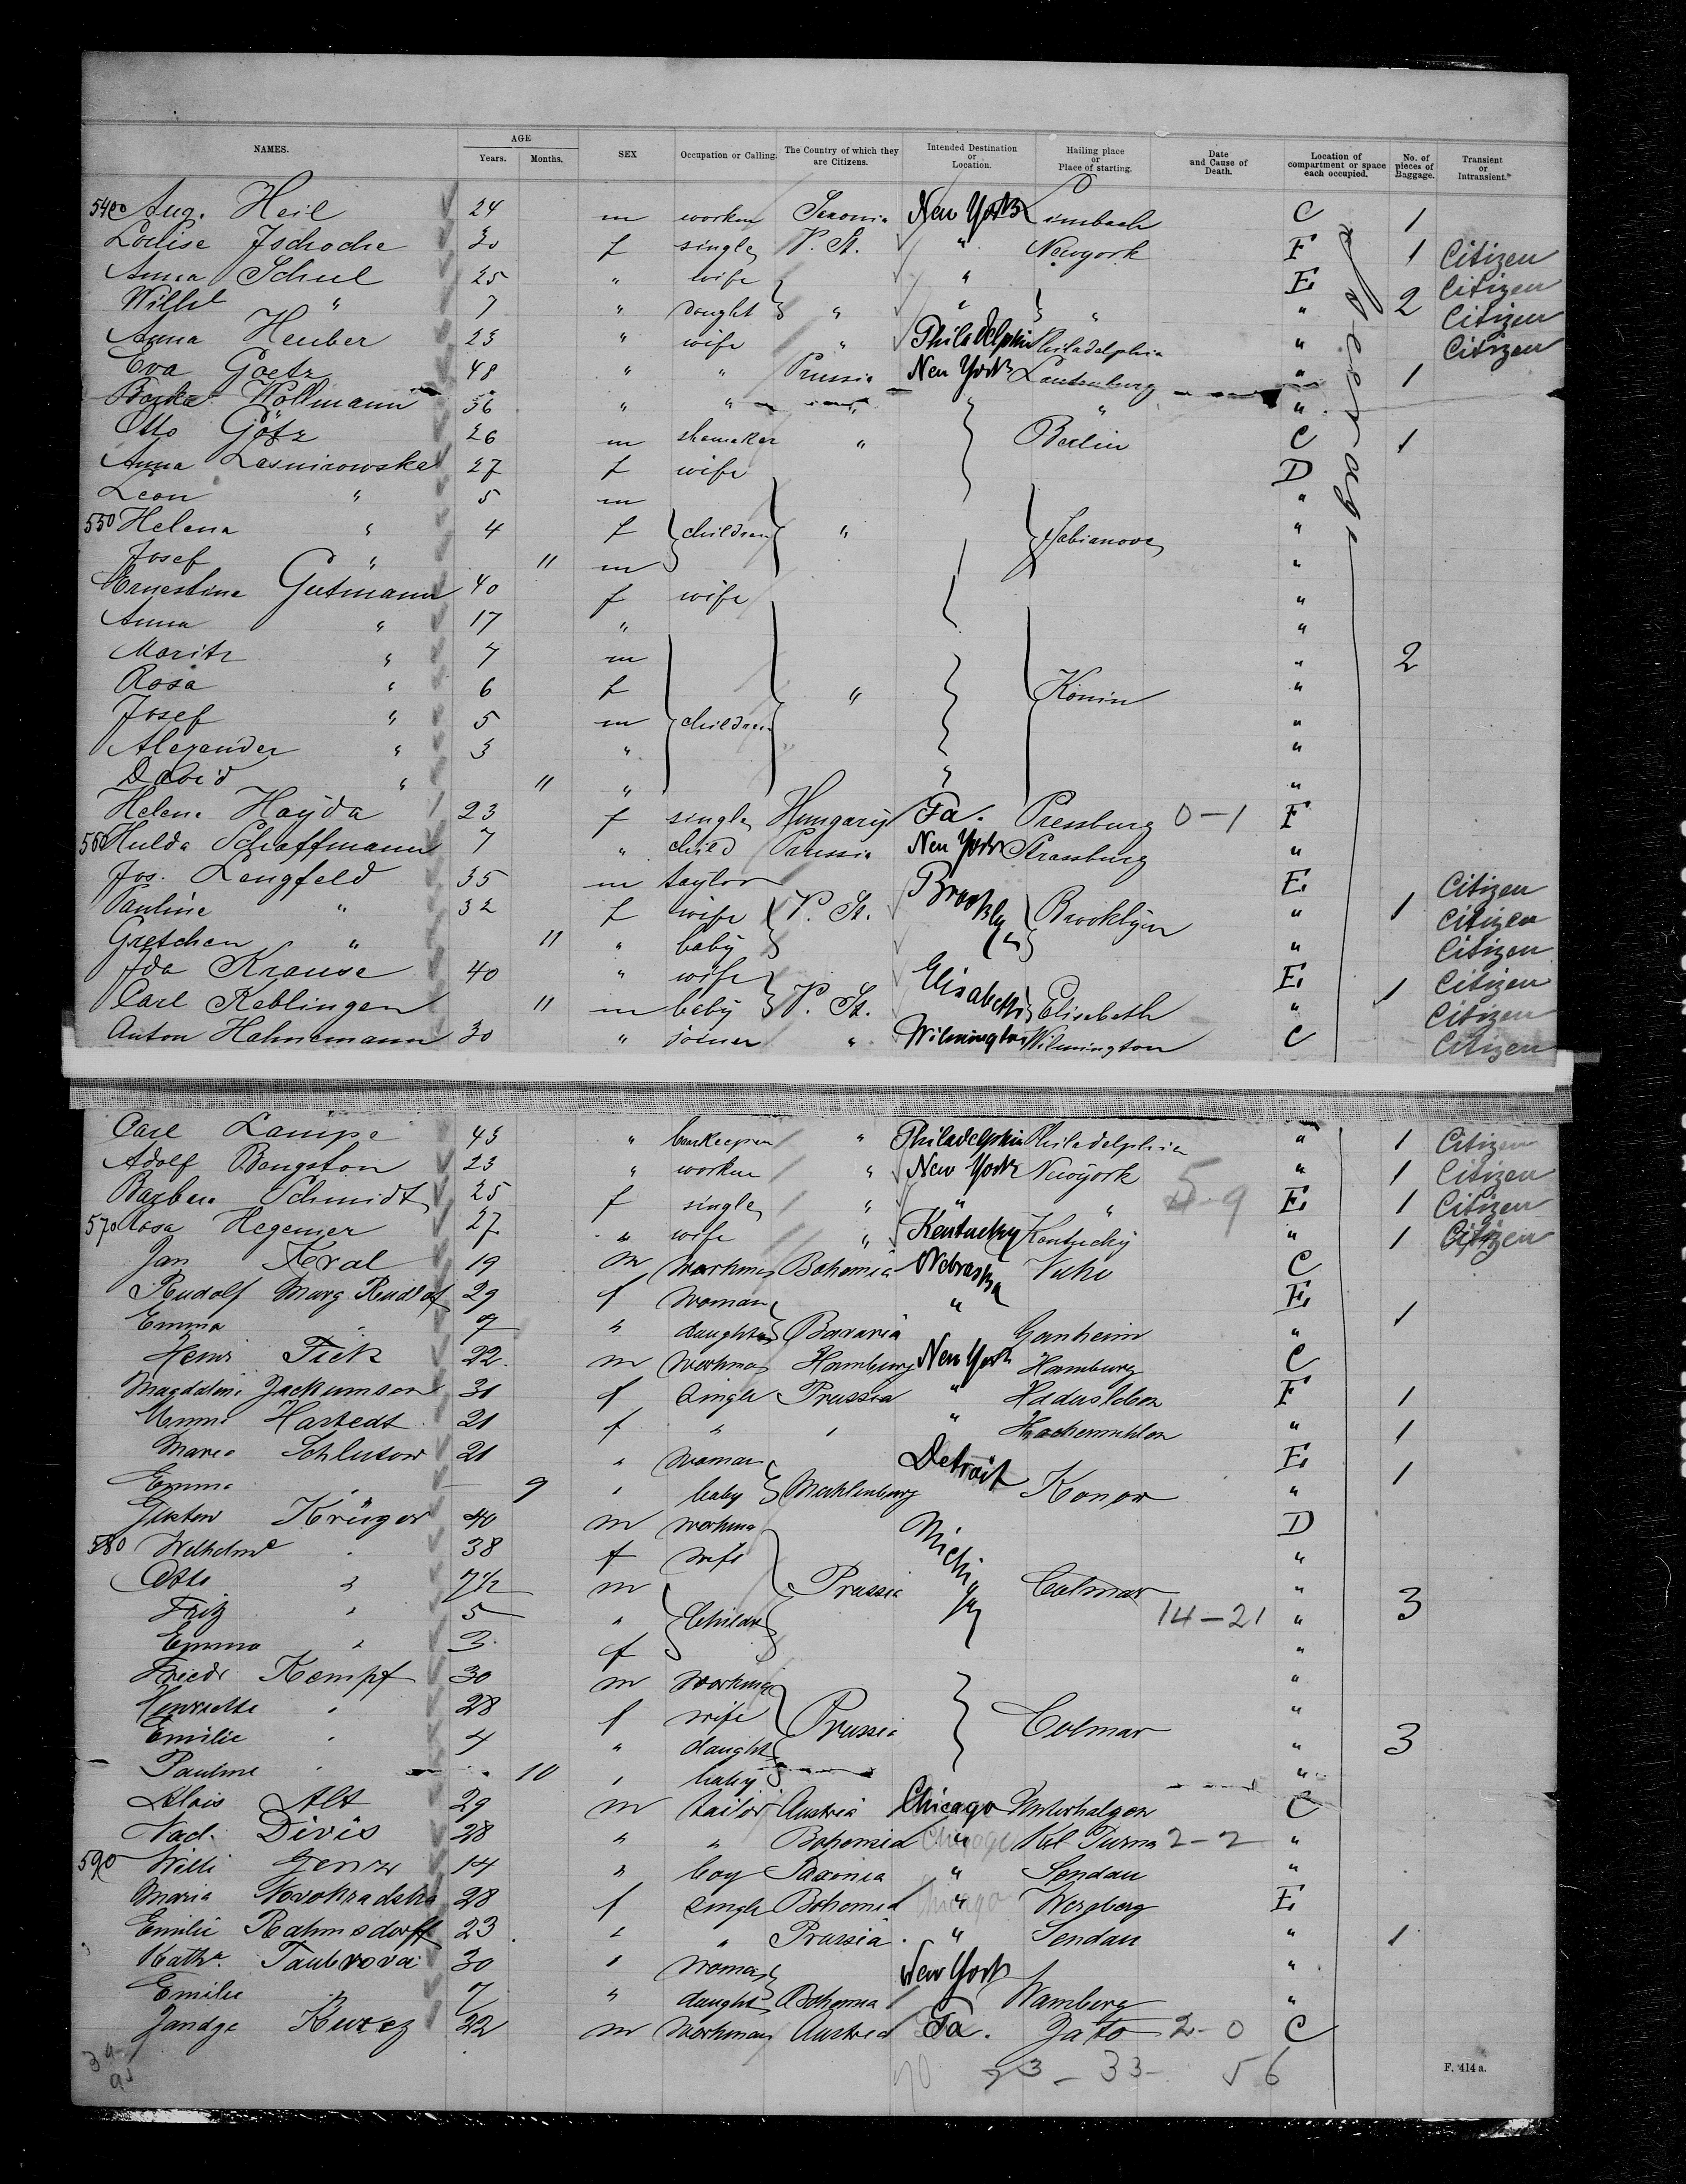 NAMES. AGE Years. Months. SEX Occupation or Calling. The Country of which they are Citizens. Intended Destination or Location. Hailing place or Place of starting. Date and Cause of Death. Location of compartment or space each occupied. No. of pieces of Baggage. Transient or Intransient.*
Aug. Heil 24 m New York C 1
Louise Jschoche 30 f single V. St. " Newyork F 1 Citizen
Anna Scheel 25 " wife " E. Citizen
" 7 " daught " " " " 2 Citizen
Anna Heuber 23 " wife " Philadelphia Philadelphia " Citizen
Eva Goetz 48 " " Prussia New York Lautenburg " 1
Wollmann 36 " " " " " "
Otto Götz 26 m shemaker " Berlin C 1
Anna Lasnirowska 27 f wife D
Leon " 5 m "
550 Helena " 4 f children " "
Josef " 11 m "
Ernestine Gutmann 40 f wife "
Anna " 17 " "
Moritz " 7 m " 2
Rosa " 6 f " Konin "
Josef " 5 m children "
Alexander " 3 " "
David " 11 " "
Helene Hayda 23 f single Hungary Pa. Pressburg 0-1 F
560 Hulda Schaffmann 7 " child Prussia New York Strassburg "
Jos. Lengfeld 35 m taylor E. Citizen
Pauline " 32 f wife V. St. Brooklyn Brooklyn " 1 Citizen
Gretchen " 11 " baby " Citizen
Ida Krause 40 " wife E. Citizen
Carl Keblingen 11 m baby V. St. Elisabeth Elisabeth " 1 Citizen
Anton Hahnemann 30 " joiner " Wilmington Wilmington C Citizen
Steerage
Carl Lampe 43 " barkeeper " Philadelphia Philadelphia " 1 Citizen
Adolf Bengston 23 " worker " New York Newyork " 1 Citizen
Schmidt 25 f single " " " 5-9 E. 1 Citizen
570 Rosa Hegemer 27 " wife " Kentucky Kentucky " 1 Citizen
Jan Kral 19 m workman Bohemia Nebraska C
Rudolf Marg Rudolf 29 f woman " E. 1
Emma 7 " daughter Bavaria Ganheim "
Henri Fick 22 m workman Hamburg New York Hamburg C
Magdalene 31 f single Prussia " F 1
Harstedt 21 f " " " " 1
Marie Schlutow 21 " woman Detroit E. 1
Emma 9 " baby Mecklenburg "
Gustav Krüger 40 m workma Michigan D
580 Wilhelme " 38 f wife "
Otto " 7 1/2 m Prussia Colmar " 3
Fritz " 5 " Childre 14-21 "
Emma " 3 f "
Friedr Kempf 30 m workma "
Henriette " 28 f wife Prussia Colmar "
Emilie " 4 " daught " 3
Pauline " 10 " baby "
Alois Alt 29 m tailor Austria Chicago C
Divis 28 " " Bohemia Chicago " 2-2 "
590 Willi 14 " boy Saxonia " Sendau "
Maria Novohradska 28 f single Bohemia Chicago " E.
Emilie Rahmsdorff 23 " " Prussia " Sendau " 1
Kathr. Taubrova 30 " woman New York "
Emilie 7 " daught Bohemia Wamberg "
22 m workman Austria Pa. 2-0 C
23-33- 56
F. 414 a.